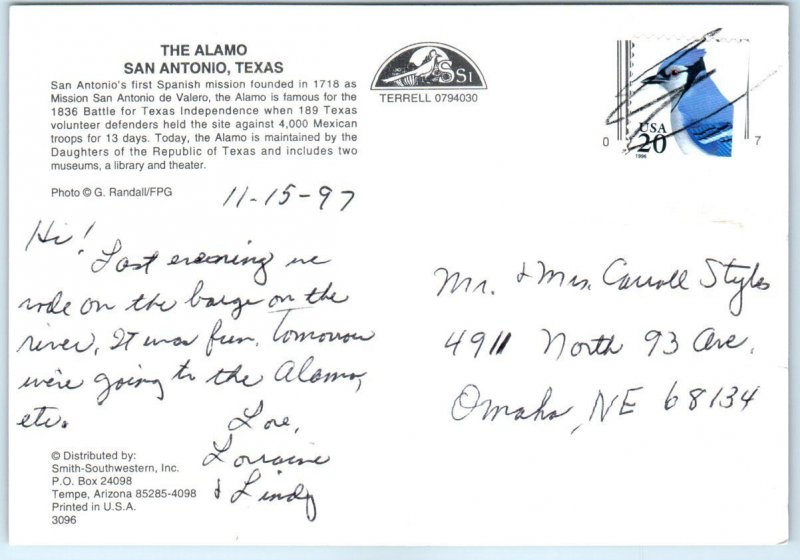 THE ALAMO
SAN ANTONIO, TEXAS
San Antonio's first Spanish mission founded in 1718 as
Mission San Antonio de Valero, the Alamo is famous for the
1836 Battle for Texas Independence when 189 Texas
volunteer defenders held the site against 4,000 Mexican
troops for 13 days. Today, the Alamo is maintained by the
Daughters of the Republic of Texas and includes two
museums, a library and theater.
Photo © G. Randall/FPG
SSI
TERRELL 0794030
USA
20
1996
0 7
11-15-97
Hi!
Last evening we
rode on the barge on the
river. It was fun. Tomorrow
we're going to the Alamo,
etc.
Love,
Lorraine
& Lindy
Mr. & Mrs. Carroll Styles
4911 North 93 Ave.
Omaha, NE 68134
© Distributed by:
Smith-Southwestern, Inc.
P.O. Box 24098
Tempe, Arizona 85285-4098
Printed in U.S.A.
3096